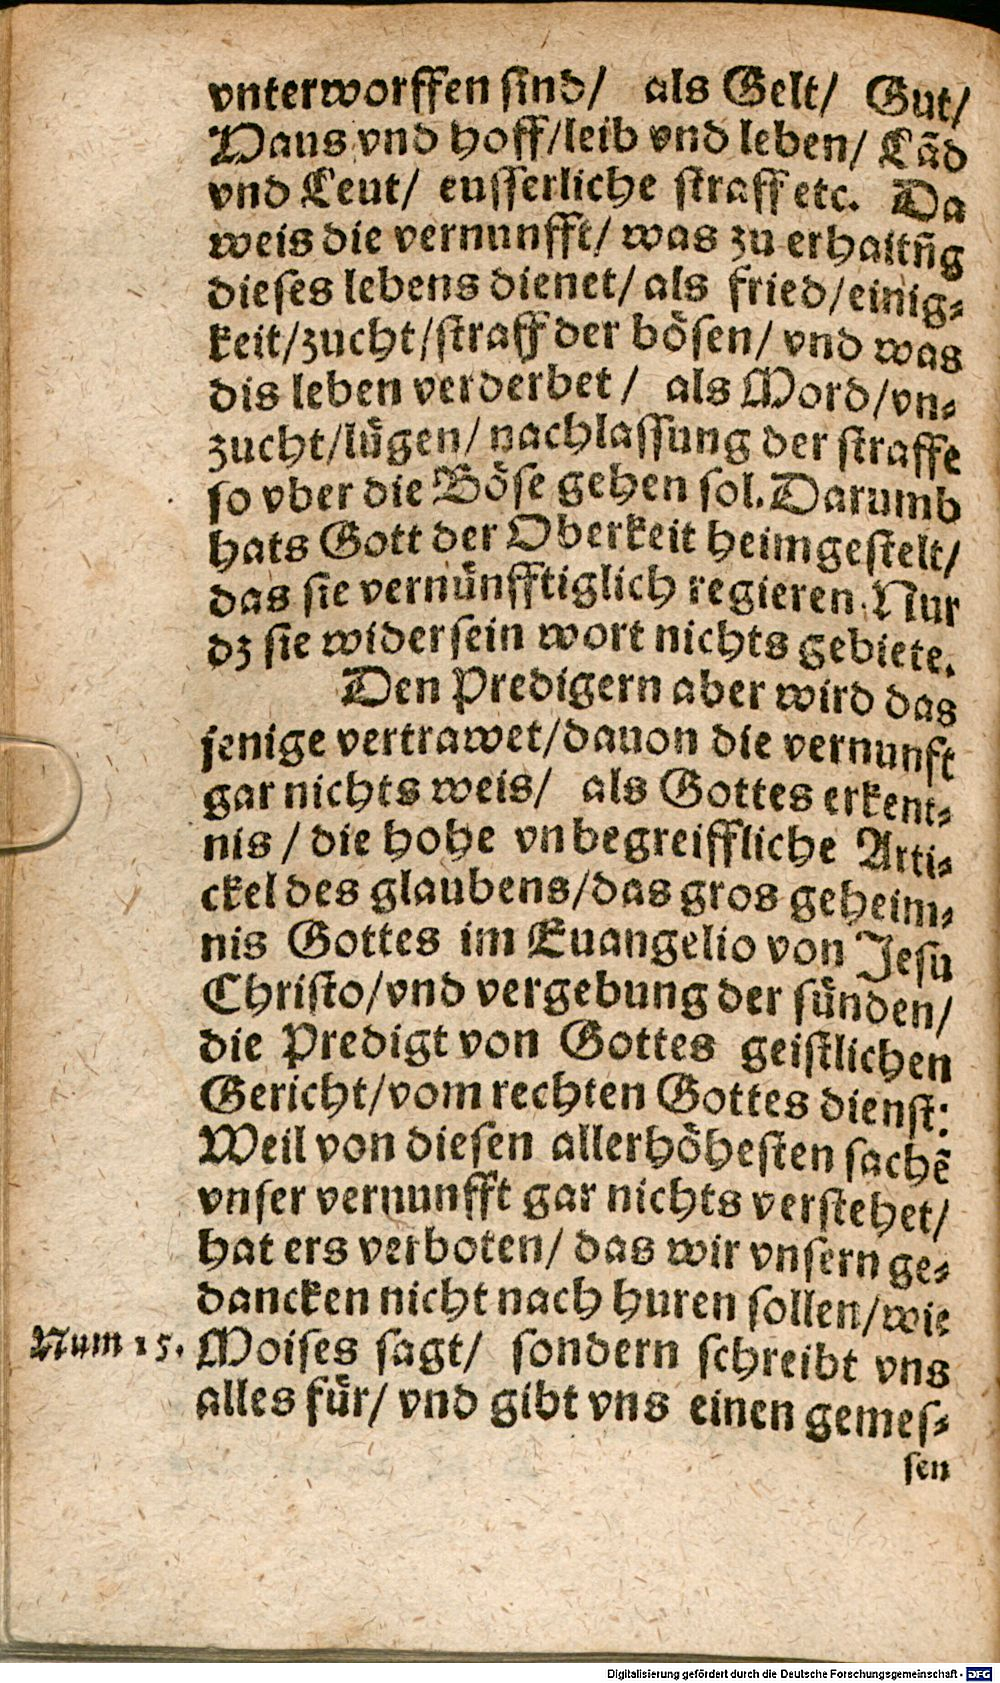 vnterworffen sind/ als Gelt/ Gut/
Haus vnd hoff/leib vnd leben/ Lãd
vnd Leut/ eusserliche straff etc. Da
weis die vernunfft/ was zu erhaltũg
dieses lebens dienet/ als fried/einig⸗
keit/zucht/straff der bösen/ vnd was
dis leben verderbet/ als Mord/vn⸗
zucht/lügen/ nachlassung der straffe
so vber die Böse gehen sol. Darumb
hats Gott der Oberkeit heimgestelt/
das sie vernünfftiglich regieren. Nur
dz sie wider sein wort nichts gebiete.
Den Predigern aber wird das
jenige vertrawet/dauon die vernunft
gar nichts weis/ als Gottes erkent⸗
nis / die hohe vnbegreiffliche Arti⸗
ckel des glaubens/das gros geheim⸗
nis Gottes im Euangelio von Jesu
Christo/vnd vergebung der sünden/
die Predigt von Gottes geistlichen
Gericht/vom rechten Gottes dienst:
Weil von diesen allerhöhesten sachẽ
vnser vernunfft gar nichts verstehet/
hat ers verboten/ das wir vnsern ge⸗
dancken nicht nach huren sollen/wie
Num 15. Moises sagt/ sondern schreibt vns
alles für/ vnd gibt vns einen gemes⸗
sen
Digitalisierung gefördert durch die Deutsche Forschungsgemeinschaft - DFG